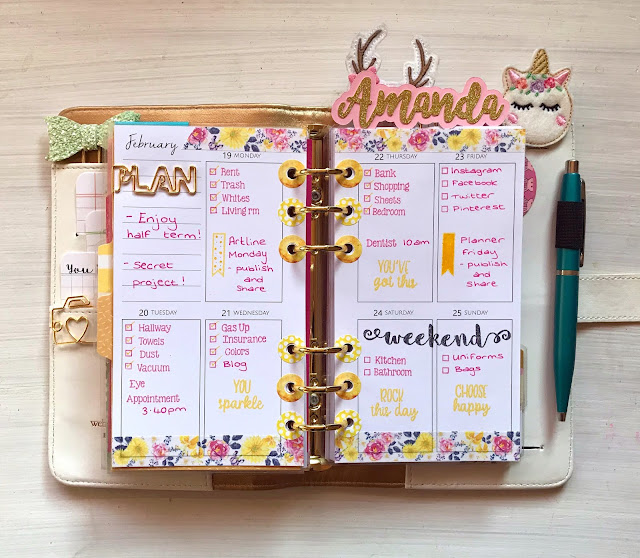 Amanda
February
PLAN
- Enjoy
half term!
- secret
project!
19 MONDAY
Rent
Trash
Whites
Living rm
Artline
Monday
- publish
and
share
20 TUESDAY
Hallway
Towels
Dust
Vacuum
Eye
Appointment
3.40pm
21 WEDNESDAY
Gas Up
Insurance
Colors
Blog
YOU
sparkle
22 THURSDAY
Bank
Shopping
Sheets
Bedroom
Dentist 10am
YOU'VE
got this
23 FRIDAY
Instagram
Facebook
Twitter
Pinterest
Planner
Friday
- publish
and
share
24 SATURDAY
25 SUNDAY
weekend
Kitchen
Bathroom
ROCK
this day
Uniforms
Bags
CHOOSE
happy
You